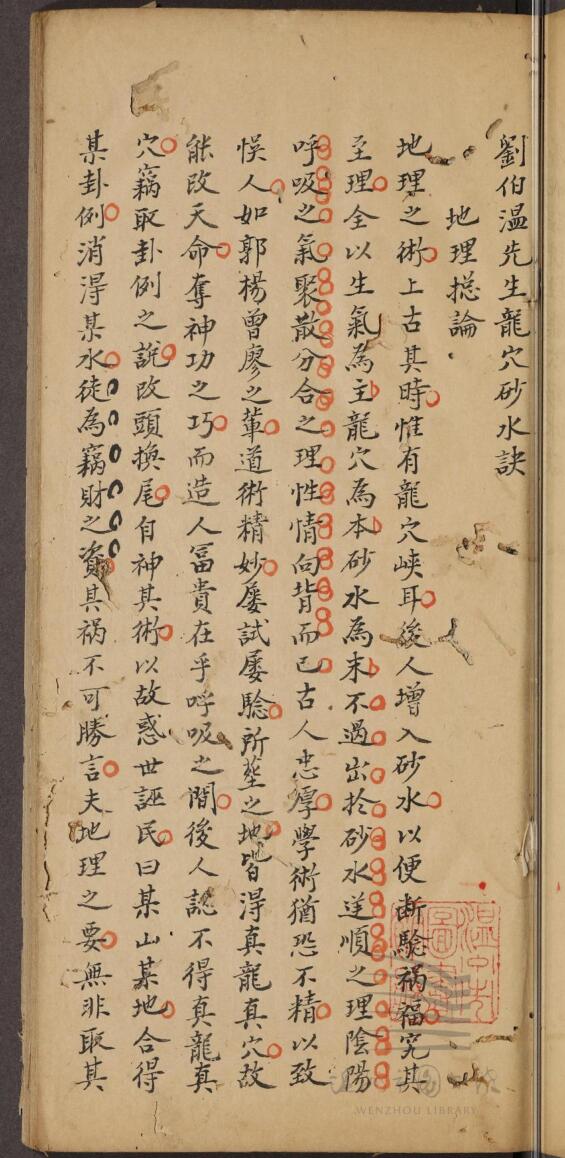 劉伯溫先生龍穴砂水訣
地理捴論
地理之術上古其時惟有龍穴峽耳後人增入砂水以便断驗祸福究其
至理全以生氣為主龍穴為本砂水為末不過出扵砂水逆順之理陰陽
呼吸之氣聚散分合之理性情向背而已古人忠厚學術猶恐不精以致
悞人如郭楊曾廖之軰道術精妙屡試屡騐所塟之地皆得真龍真穴故
能改天命奪神功之巧而造人冨貴在乎呼吸之間後人認不得真龍真
穴竊取卦例之說改頭換尾自神其術以故惑世誣民曰某山某地合得
某卦例消淂某水徒為竊財之資其祸不可勝言夫地理之要無非取其
WENZHOU LIBRARY